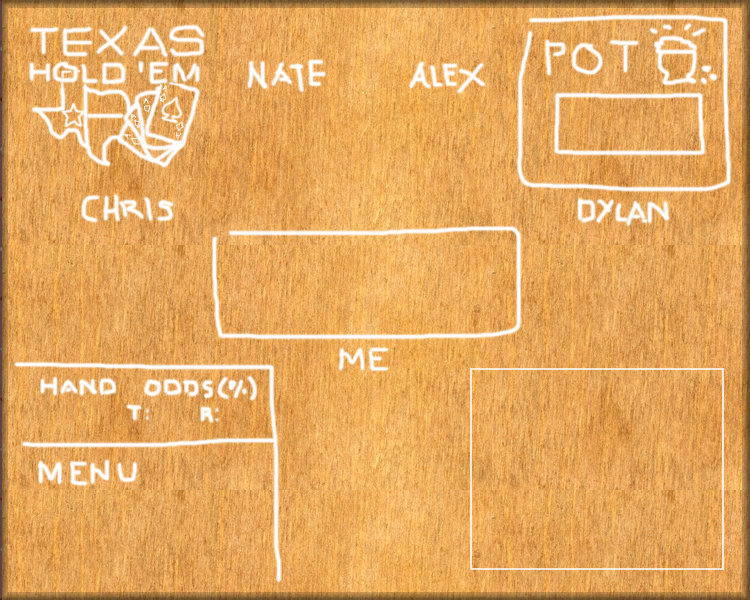 TEXAS
HOLD 'EM
NATE
ALEX
POT
CHRIS
DYLAN
ME
HAND ODDS(%)
T: R:
MENU